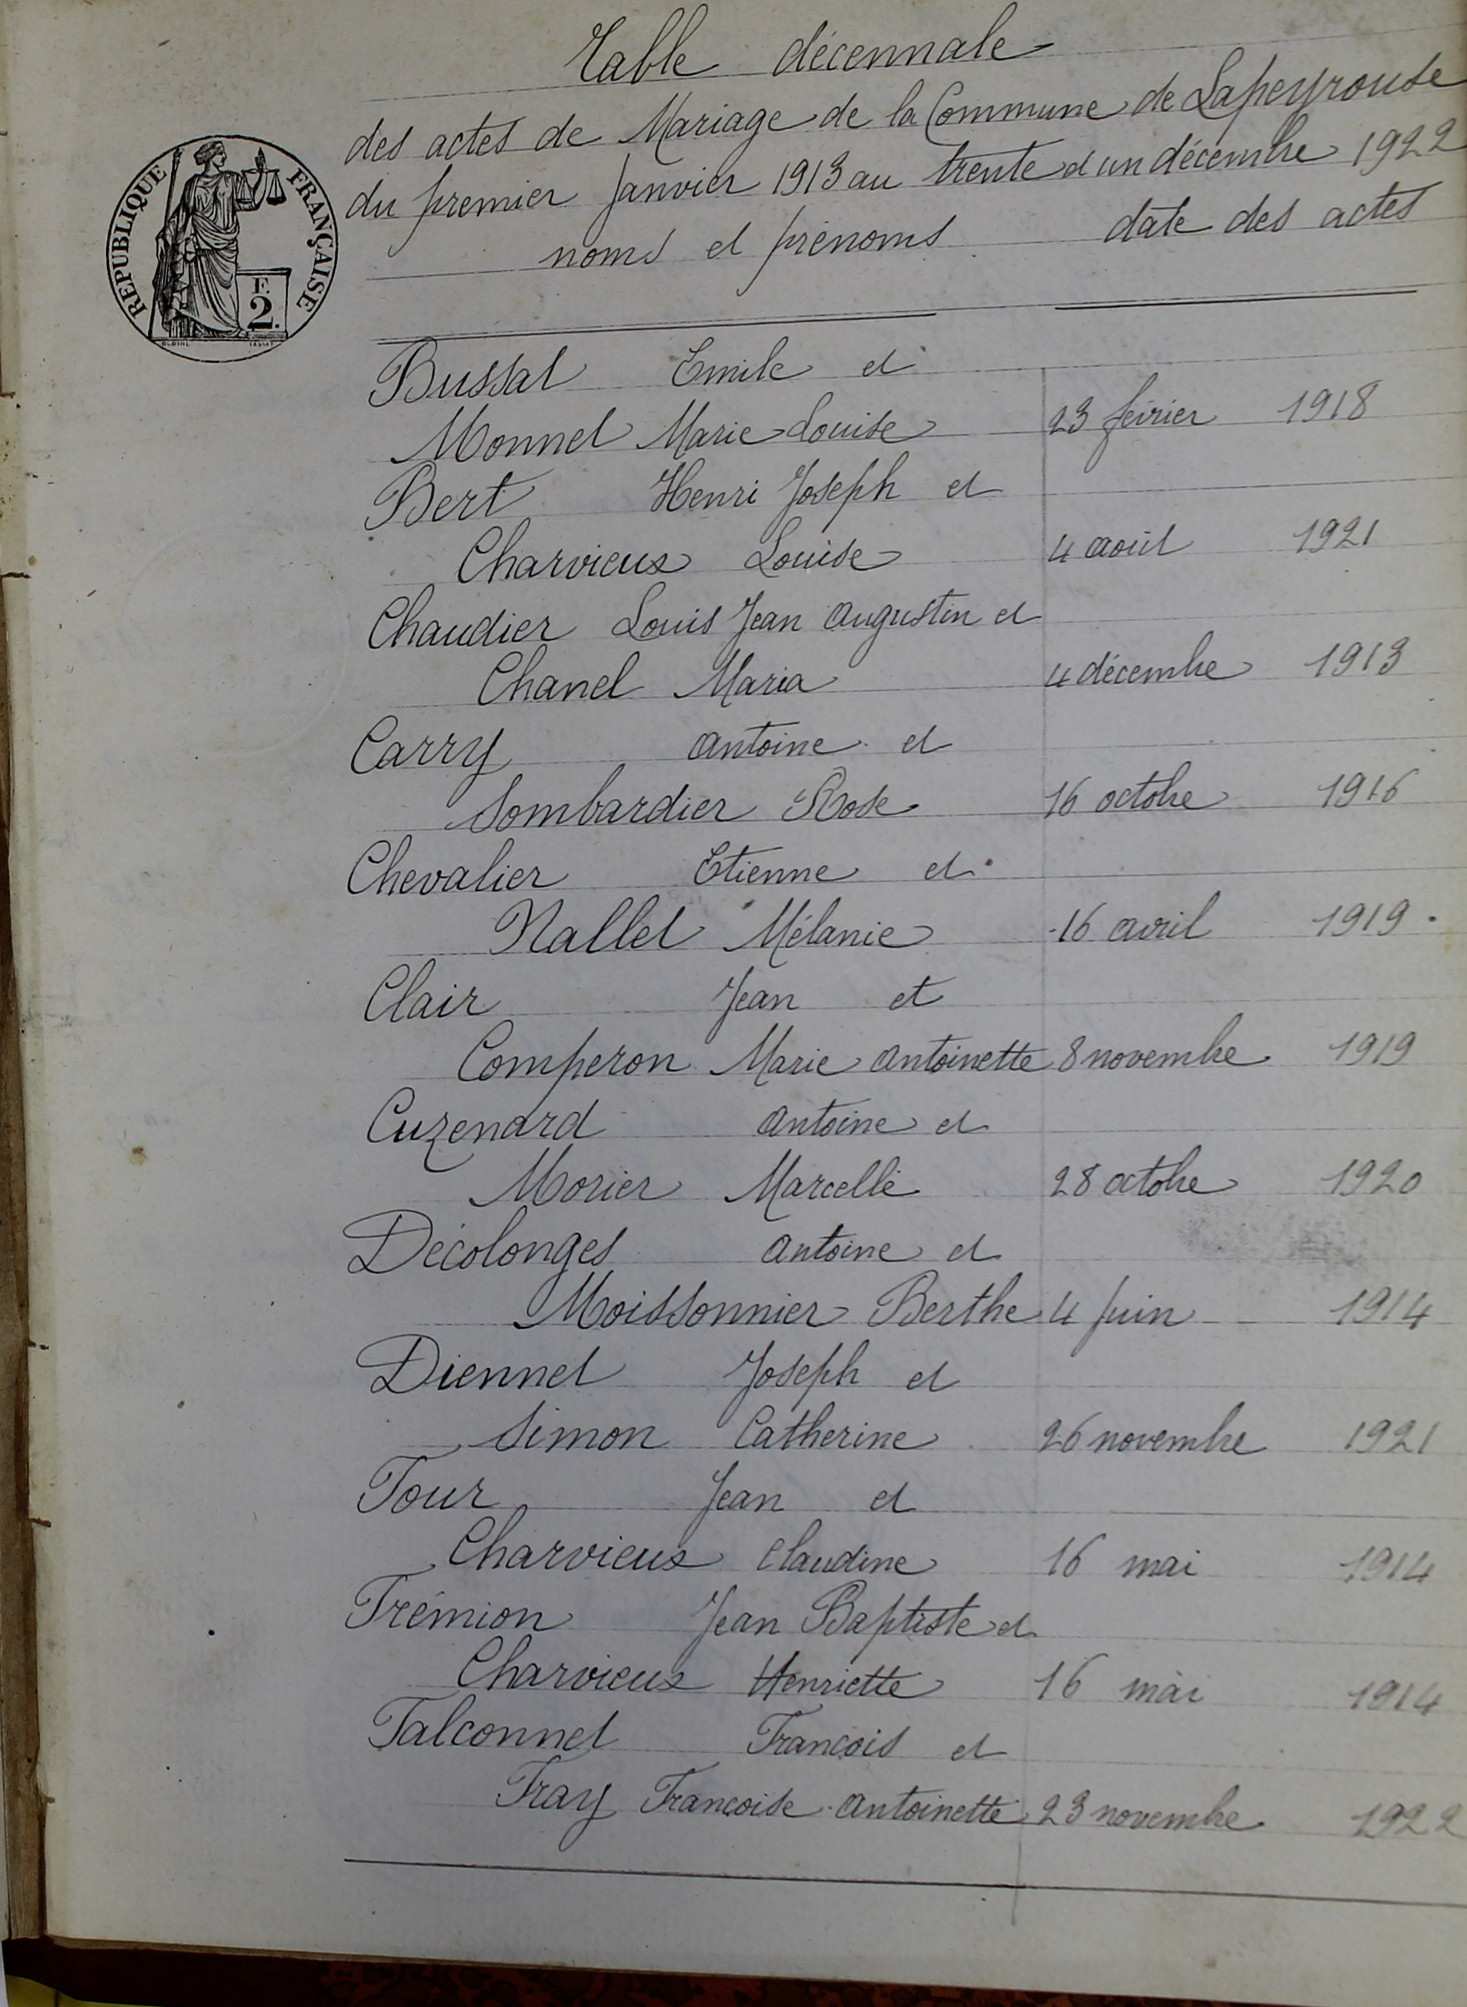 Table décennale
des actes de Mariage de la Commune de Lapeyrouse
du premier Janvier 1913 au trente et un décembre 1922
noms et prénoms date des actes
REPUBLIQUE FRANÇAISE
F.
2.
Bussat Emile et
Monnet Marie Louise 23 février 1918
Bert Henri Joseph et
Charvieux Louise 4 août 1921
Chaudier Louis Jean Augustin et
Chanel Maria 4 décembre 1913
Carry Antoine et
Sombardier Rose 16 octobre 1916
Chevalier Etienne et
Nallet Mélanie 16 avril 1919
Clair Jean et
Comperon Marie Antoinette 8 novembre 1919
Cuzenard Antoine et
Morier Marcelle 28 octobre 1920
Décolonges Antoine et
Moissonnier Berthe 4 Juin 1914
Diennet Joseph et
Simon Catherine 26 novembre 1921
Four Jean et
Charvieux Claudine 16 mai 1914
Frémion Jean Baptiste et
Charvieux Henriette 16 mai 1914
Falconnet Francois et
Fray Francoise Antoinette 23 novembre 1922